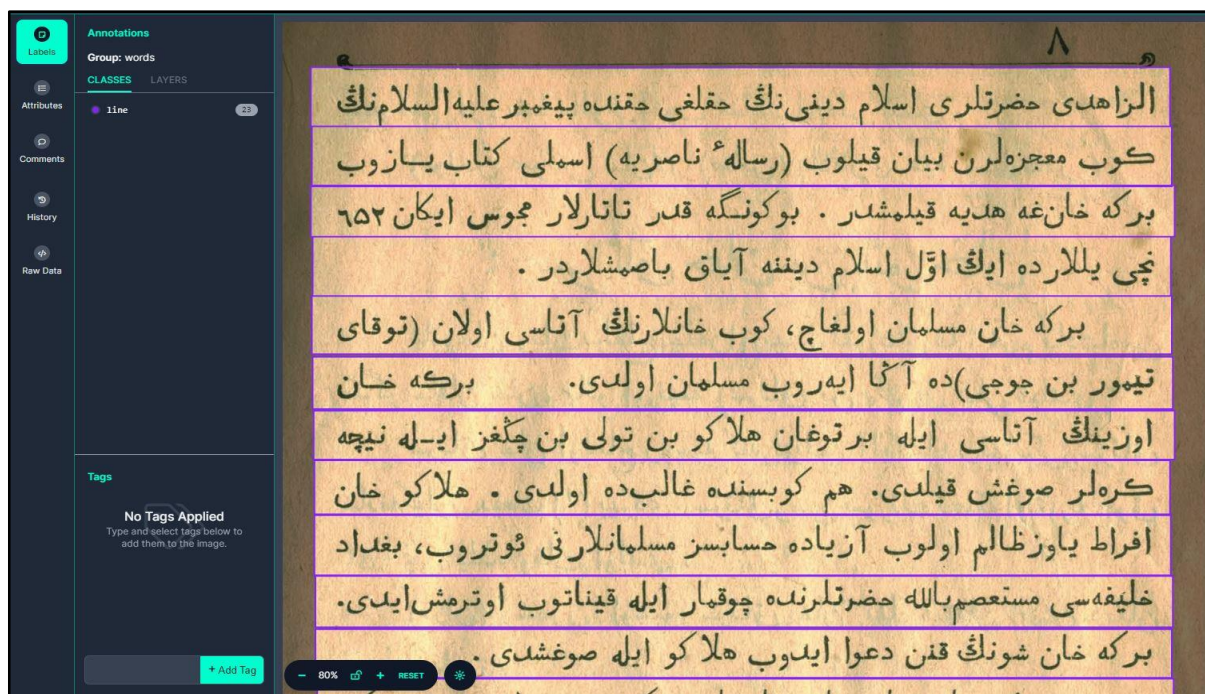 Labels
Attributes
Comments
History
Raw Data
Annotations
Group: words
CLASSES LAYERS
line 23
Tags
No Tags Applied
Type and select tags below to
add them to the image.
+ Add Tag
- 80% + RESET
٨
الزاهدى حضرتلرى اسلام دينى‌نڭ حقلغى حقنده پيغمبر عليه‌السلام‌نڭ
كوب معجزه‌لرن بيان قيلوب (رسالهٔ ناصريه) اسملى كتاب يــازوب
بركه خان‌غه هديه قيلمشدر . بوكونـگه قدر تاتارلار مجوس ايكان ٦٥٢
نچى يللارده ايڭ اوَّل اسلام ديننه آياق باصمشلاردر .
بركه خان مسلمان اولغاچ، كوب خانلارنڭ آتاسى اولان (توقاى
تيمور بن جوجى)ده آڭا ايه‌روب مسلمان اولدى. بركه خــان
اوزينڭ آتاسى ايله برتوغان هلاكو بن تولى بن چڭغز ايــله نيچه
كره‌لر صوغش قيلدى. هم كوبسنده غالب‌ده اولدى . هلاكو خان
افراط ياوز ظالم اولوب آزياده حسابسز مسلمانلارنى ئوتروب، بغداد
خليفه‌سى مستعصم‌بالله حضرتلرنده چوقمار ايله قيناتوب اوترمش‌ايدى.
بركه خان شونڭ قنن دعوا ايدوب هلاكو ايله صوغشدى .